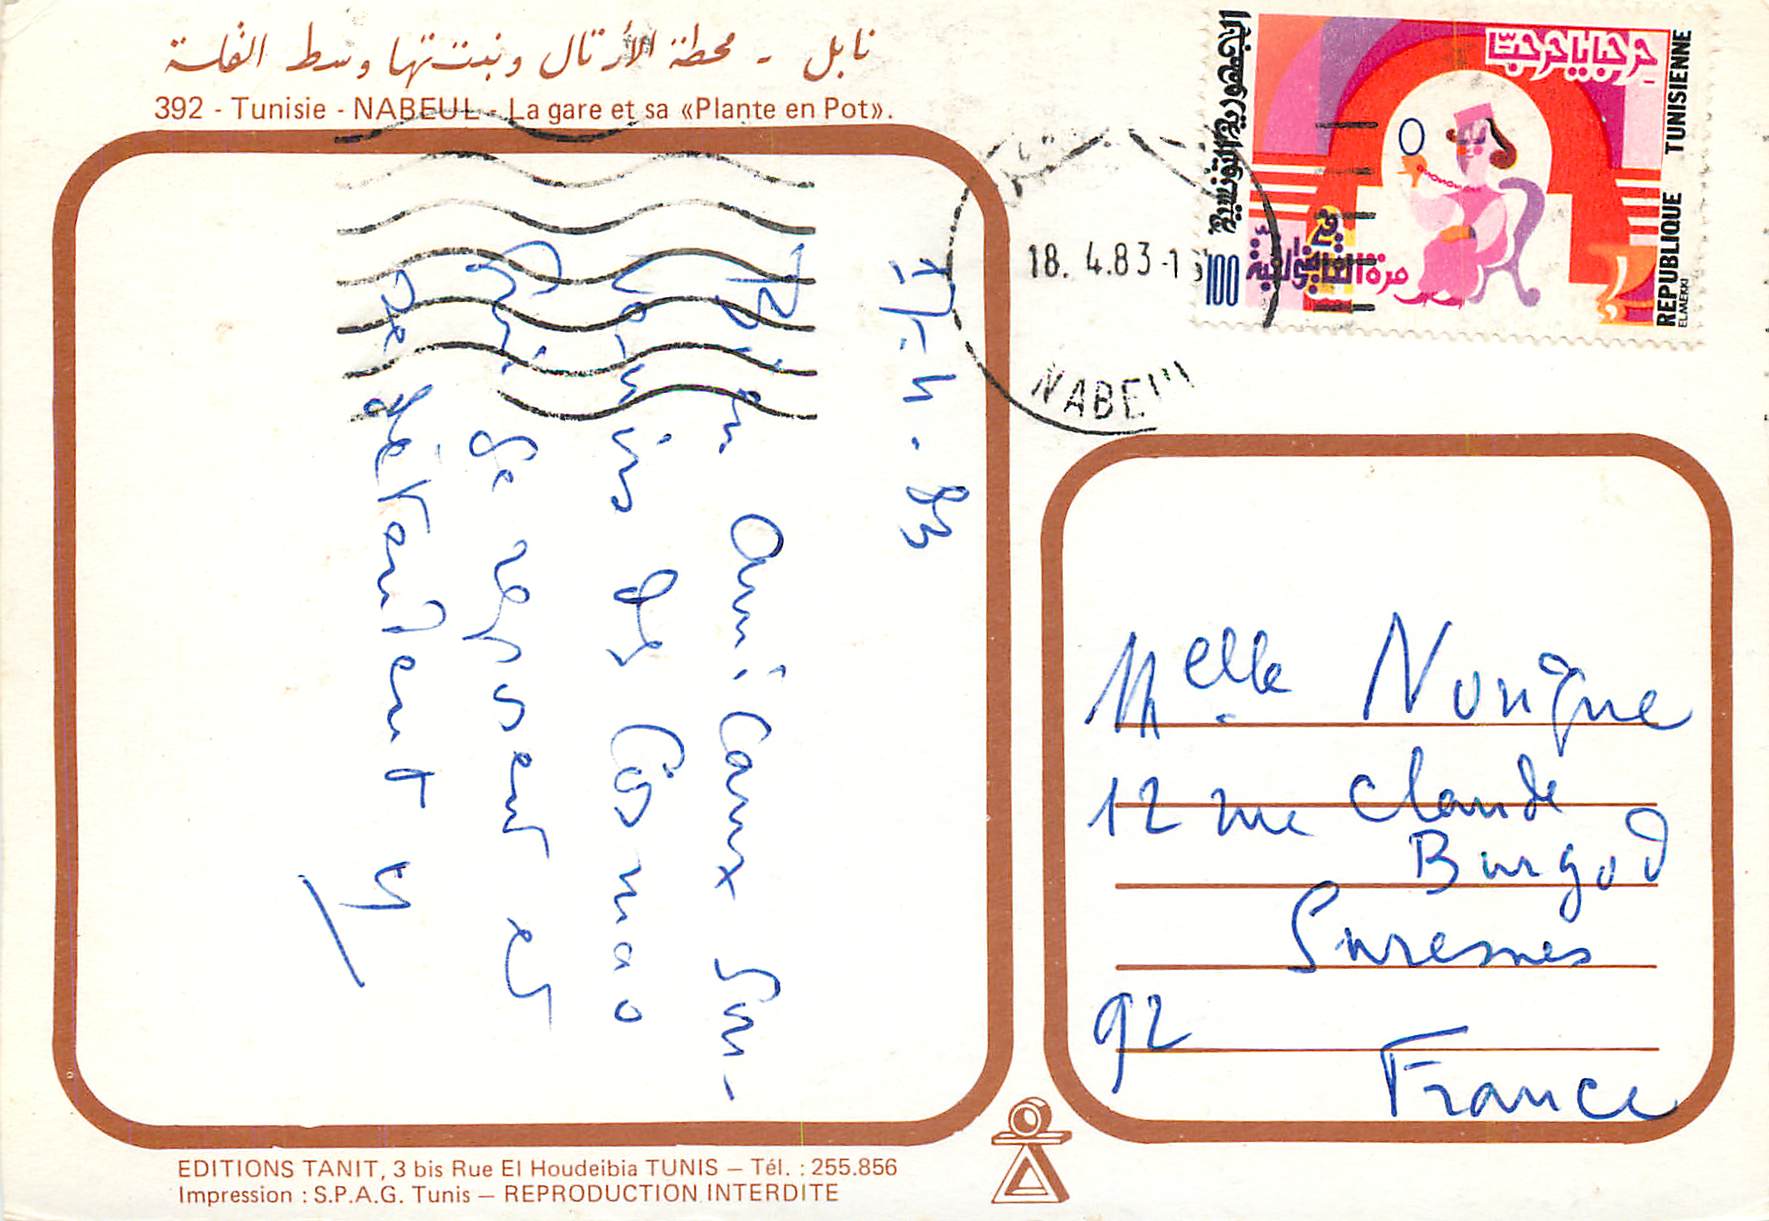 نابل - محطة الأرتال ونبتتها وسط القلة
392 - Tunisie - NABEUL - La gare et sa «Plante en Pot».
17-4-83
Bien amicaux Sou-
venirs des Cosmao
qui se reposent et
se détendent
الجمهورية التونسية
REPUBLIQUE TUNISIENNE
ELMEKKI
100
18.4.83-1
NABEUL
Melle Nonique
12 rue Claude
Burgod
Suresnes
92
France
EDITIONS TANIT, 3 bis Rue El Houdeibia TUNIS — Tél. : 255.856
Impression : S.P.A.G. Tunis — REPRODUCTION INTERDITE